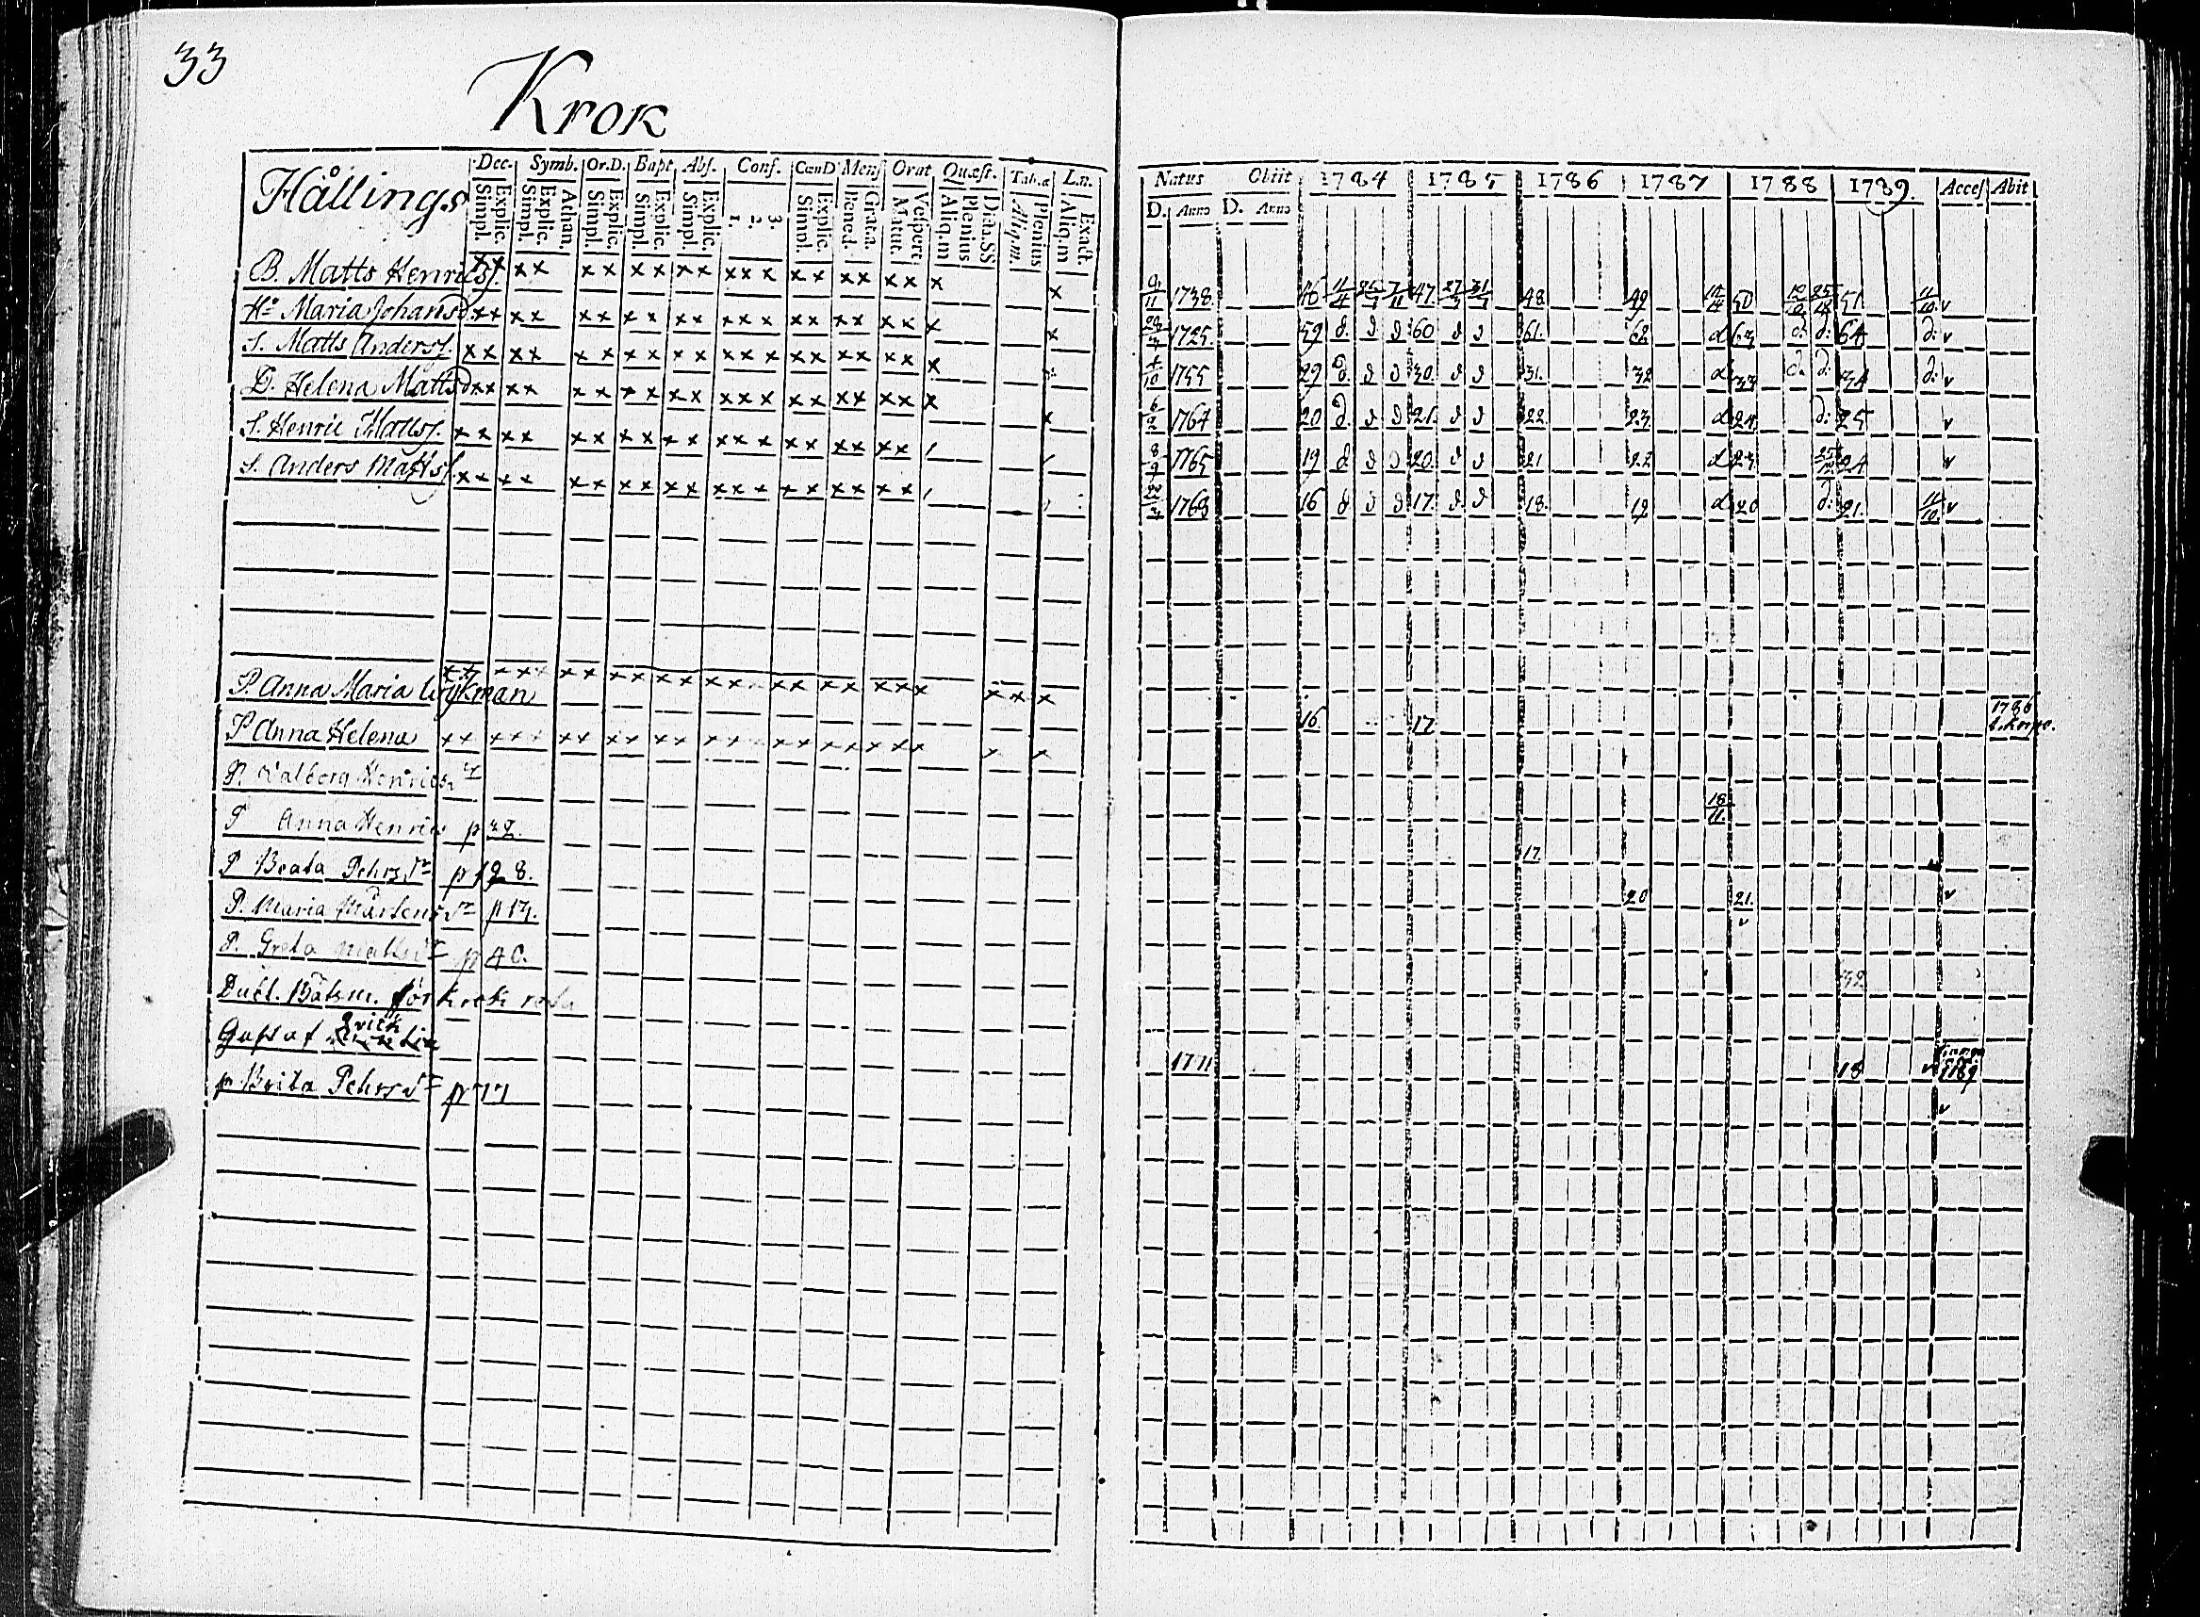 33
Krok
Hållings
Dec. Symb. Or.D. Bapt Abs. Conf. CœnD Mens Orat Quæst. Tab.œ L.n.
Simpl. Explic. Simpl. Explic. Athan. Simpl. Explic. Simpl. Explic. Simpl. Explic. 1. 2. 3. Simpl. Explic. Bened. Grat.a. Matut. Vespert Aliq.m Plenius Dicta.SS Aliq.m. Plenius Aliq.m Exact.
B. Matts Henrics.
Ha Maria Johansd.
S. Matts Anderss.
D. Helena Mattsdr
S. Henric Mattss.
S. Anders Matss.
P. Anna Maria Wykman
P Anna Helena
P. Valborg Henricsr
P Anna Henrics p 32.
P Beata Pehrsdr p 128.
P. Maria Mårtensdr p 17.
P. Greta Matsdr p 40.
Dubl. Båtsm. för Krok rota
Gustaf Qvick
p Brita Pehrsdr p 77
Natus Obiit 1784 1785 1786 1787 1788 1789. Acces Abit
D. Anno D. Anno
9/11 1738. 46 11/4 47. 48. 49 50 51. 11/10. v
1725. 59 d. d d 60 d d 61. 62 d 63 d. d: 64 d: v
1755 29 d. d d 30. d d 31. 32 d 33 d. d. 34 d: v
6/2 1764 20 d. d d 21. d d 22. 23. d 24. d: 25 v
8/9 1765 19 d. d d 20. d d 21 22 d 23. 24 v
1768 16 d d d 17. d. d 18. 19 d 20 d: 21. 11/10. v
16. 17 1786
18/11.
17.
20 21. v
v
32
1771 18 v 1789
v